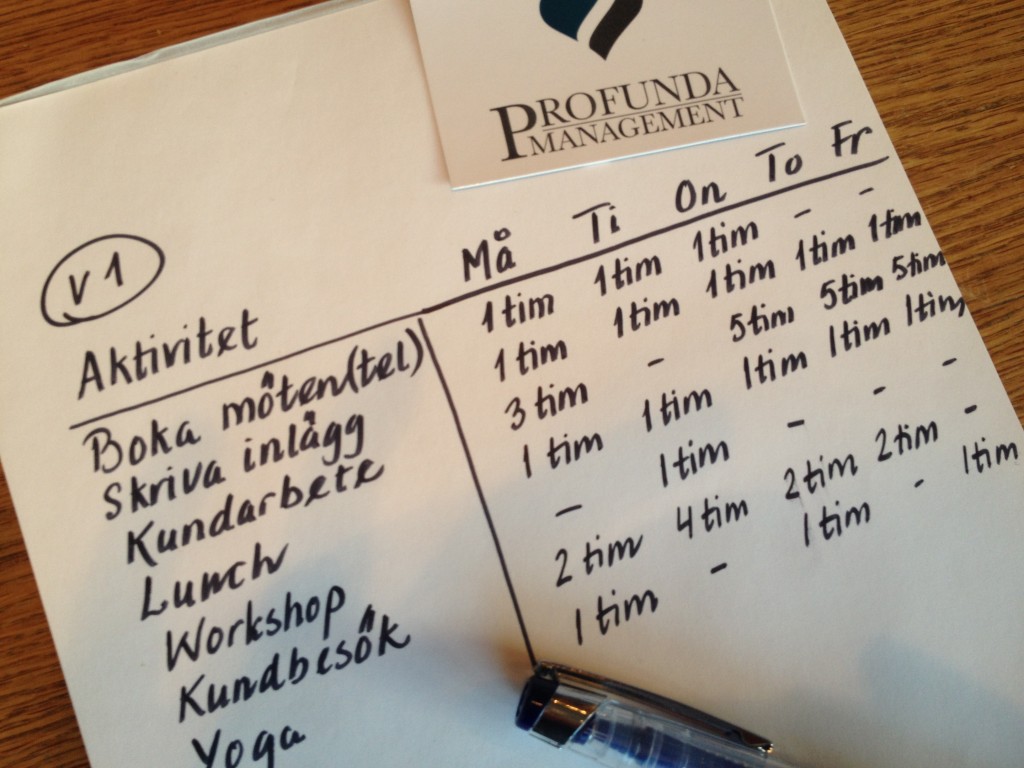 PROFUNDA
MANAGEMENT
V1
Aktivitet Må Ti On To Fr
Boka möten(tel) 1 tim 1 tim 1 tim - -
Skriva inlägg 1 tim 1 tim 1 tim 1 tim 1 tim
Kundarbete 3 tim - 5 tim 5 tim 5 tim
Lunch 1 tim 1 tim 1 tim 1 tim 1 tim
Workshop - 1 tim - - -
Kundbesök 2 tim 4 tim 2 tim 2 tim -
Yoga 1 tim - 1 tim - 1 tim